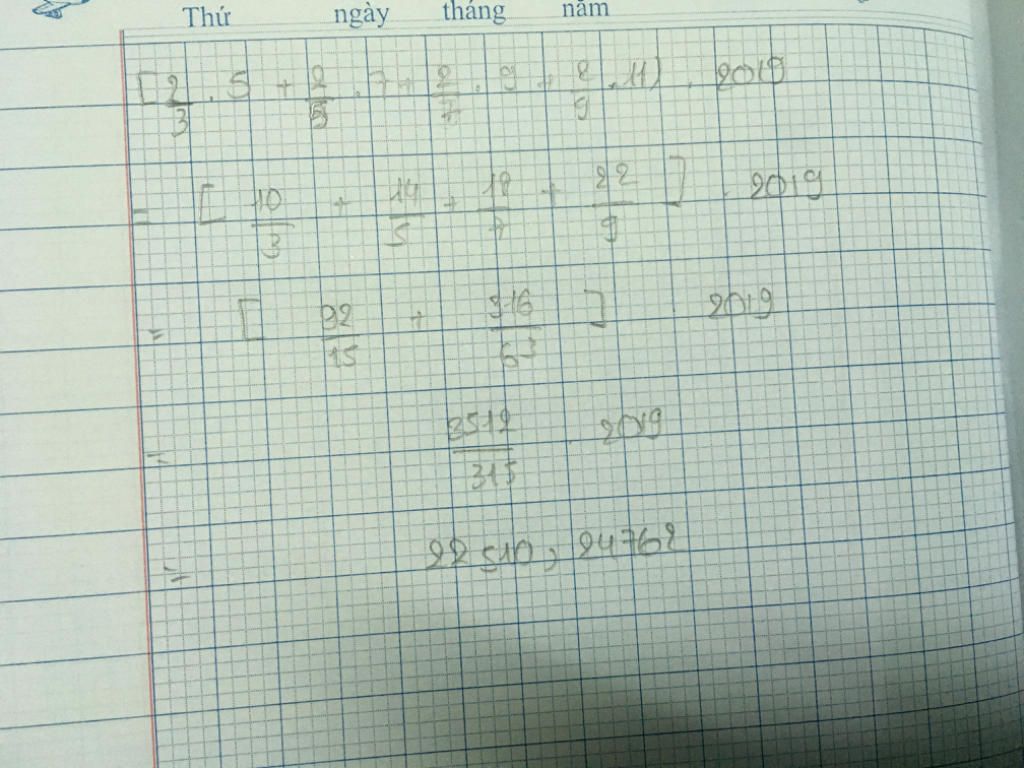 Thứ ngày tháng năm
[2/3 . 5 + 2/5 . 7 + 2/7 . 9 + 2/9 . 11) . 2019
= [ 10/3 + 14/5 + 18/7 + 22/9 ] . 2019
= [ 92/15 + 316/63 ] 2019
= 3512/315 . 2019
= 22510,24762